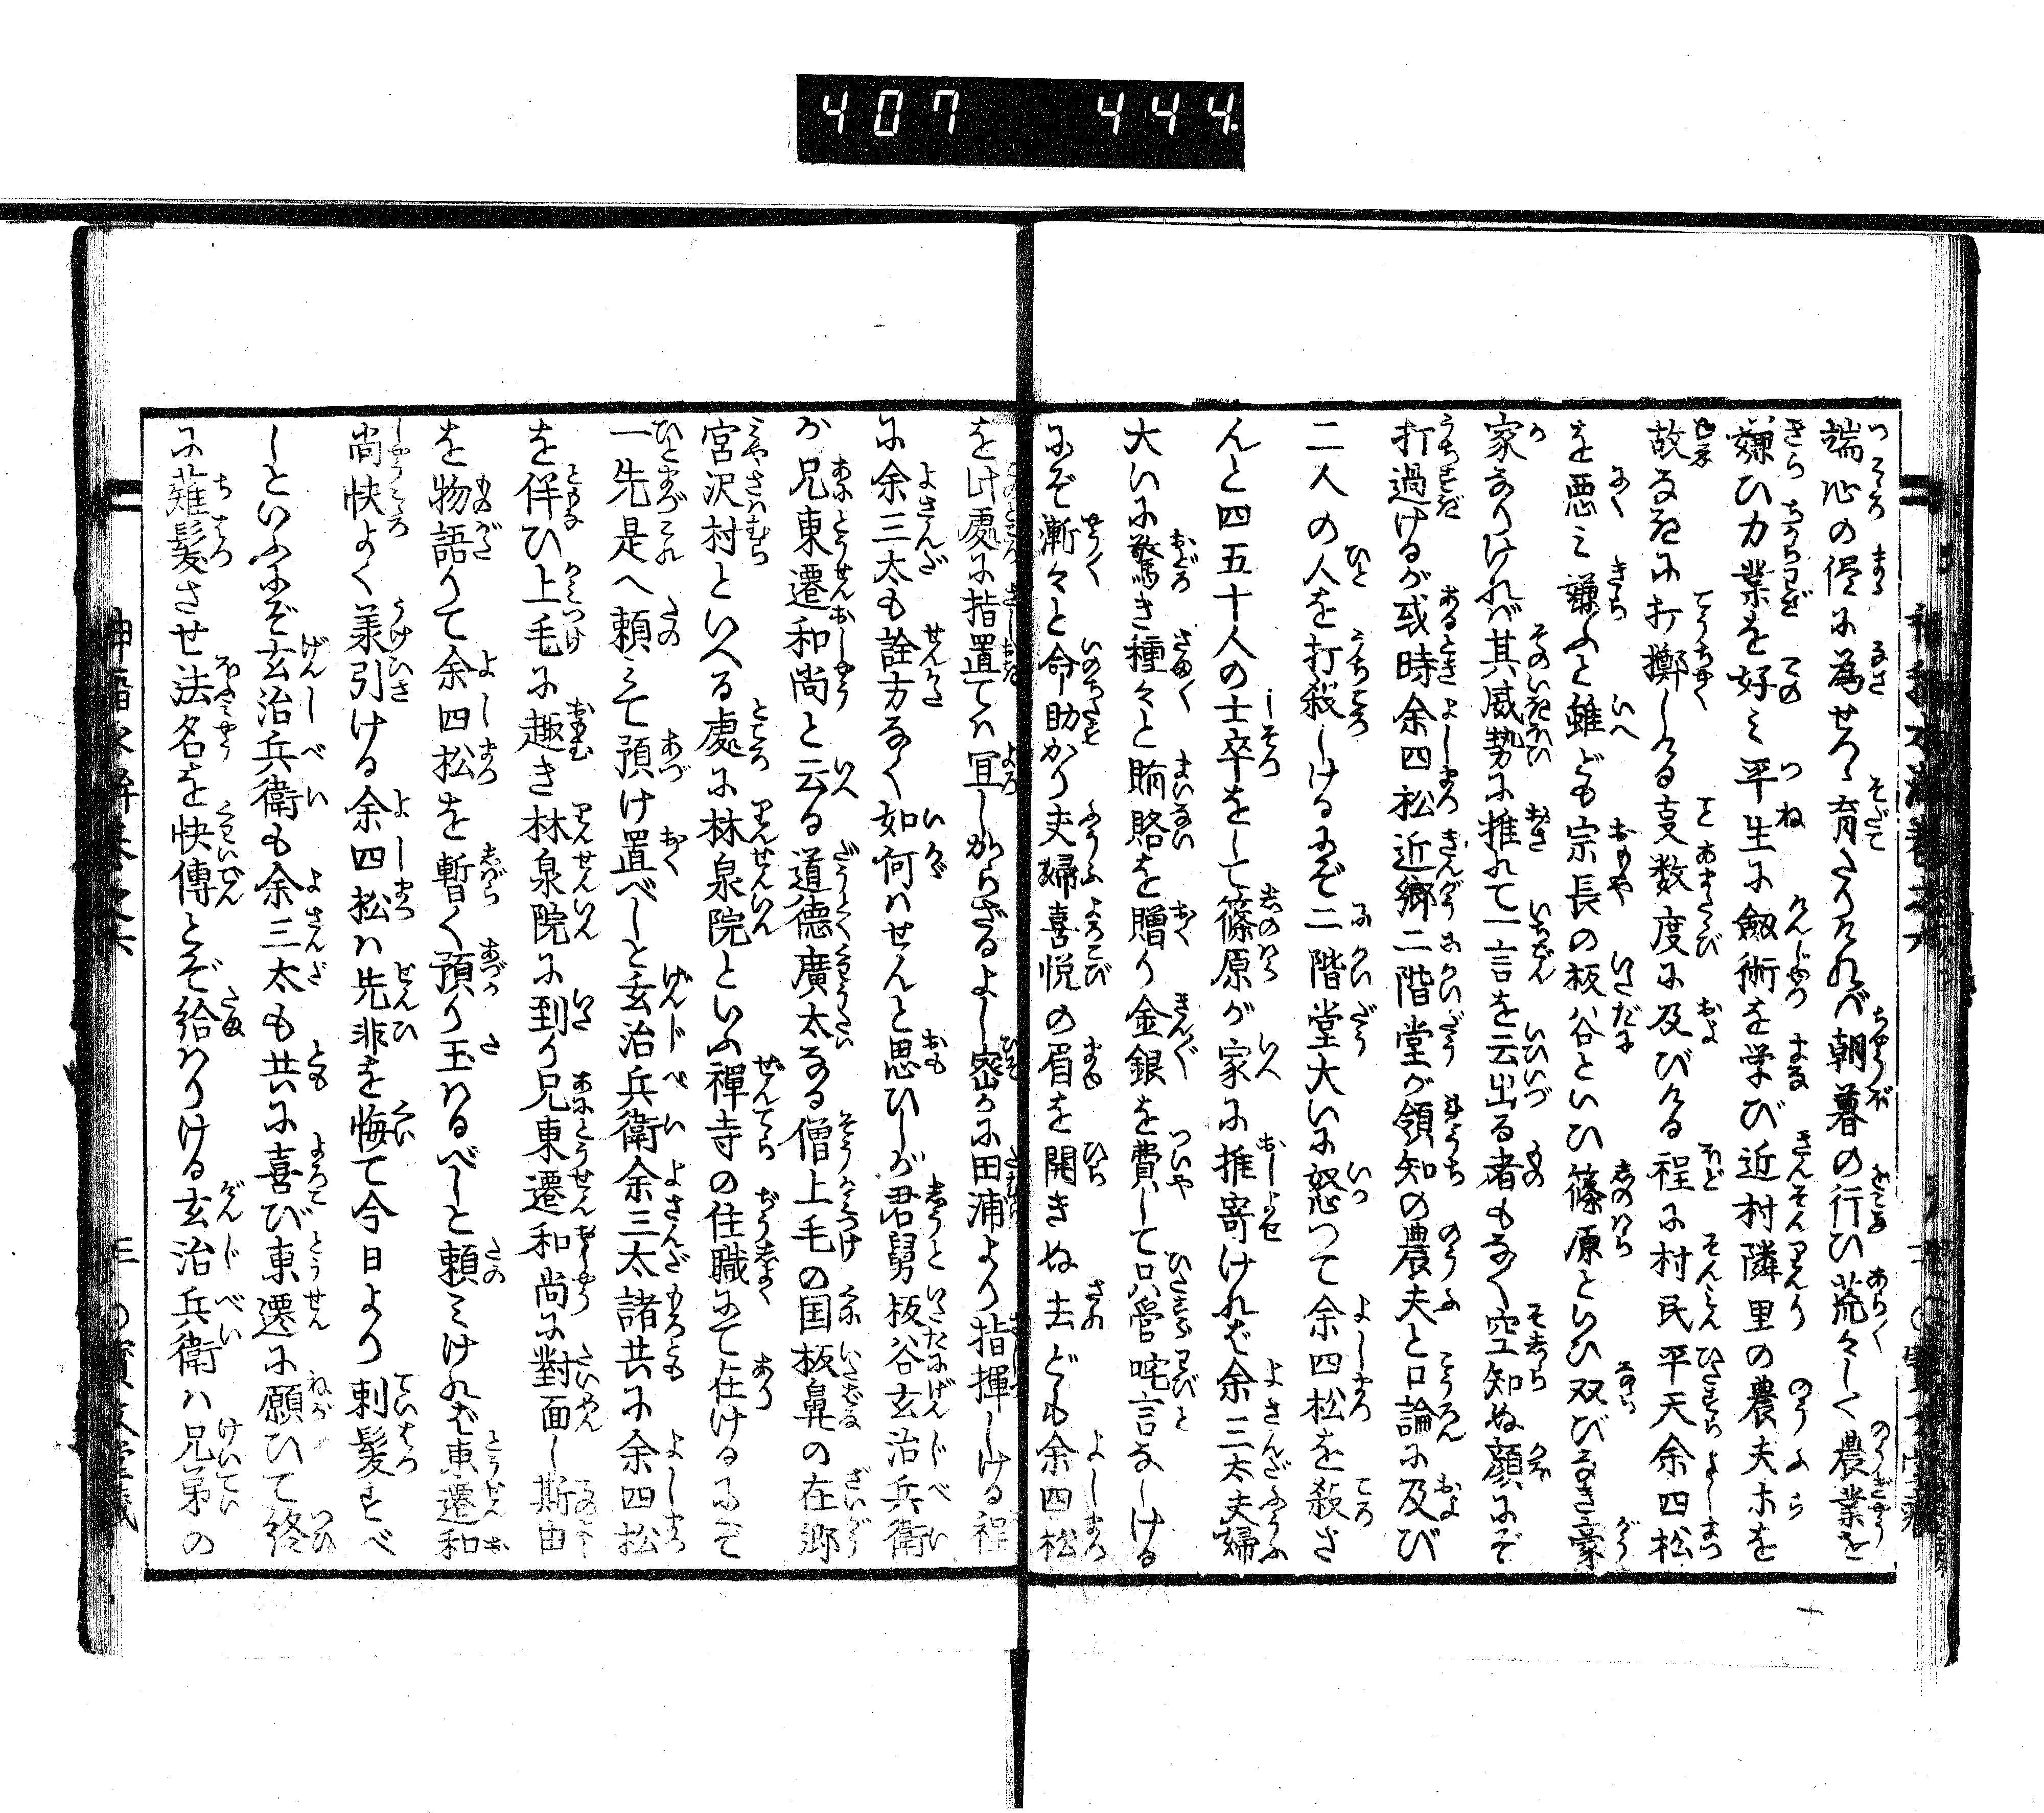 407 444.
端心の侭に為せつゝ育たりければ朝暮の行ひ荒々しく農業を
嫌ひ力業を好み平生に剱術を学び近村隣里の農夫ホを
故なきに打擲しける㕝数度に及びける程に村民平天余四松
を悪み嫌ふと雖ども宗長の板谷といひ篠原といひ双びなき豪
家なりければ其威勢に推れて一言を云出る者もなく空知ぬ顔にぞ
打過けるが或時余四松近郷二階堂が領知の農夫と口論に及び
二人の人を打殺しけるにぞ二階堂大いに怒つて余四松を殺さ
んと四五十人の士卒をして篠原が家に推寄ければ余三太夫婦
大いに驚き種々と賄賂を贈り金銀を費して只管咤言なしける
にぞ漸々と命助かり夫婦喜悦の眉を開きぬ去ども余四松
を此處に指置ては冝しからざるよし密に田浦より指揮しける程
に余三太も詮方なく如何はせんと思ひしが君舅板谷玄治兵衛
が兄東遷和尚と云る道徳廣太なる僧上毛の国板鼻の在郷
宮沢村といへる處に林泉院といふ禅寺の住職にて在けるにぞ
一先是へ頼みて預け置べしと玄治兵衛余三太諸共に余四松
を伴ひ上毛に趣き林泉院に到り兄東遷和尚に對面し斯由
を物語りて余四松を暫く預り玉はるべしと頼みければ東遷和
尚快よく羕引ける余四松は先非を悔て今日より剃髪すべ
しといふにぞ玄治兵衛も余三太も共に喜び東遷に願ひて終
に薙髪させ法名を快傳とぞ給はりける玄治兵衛は兄弟の